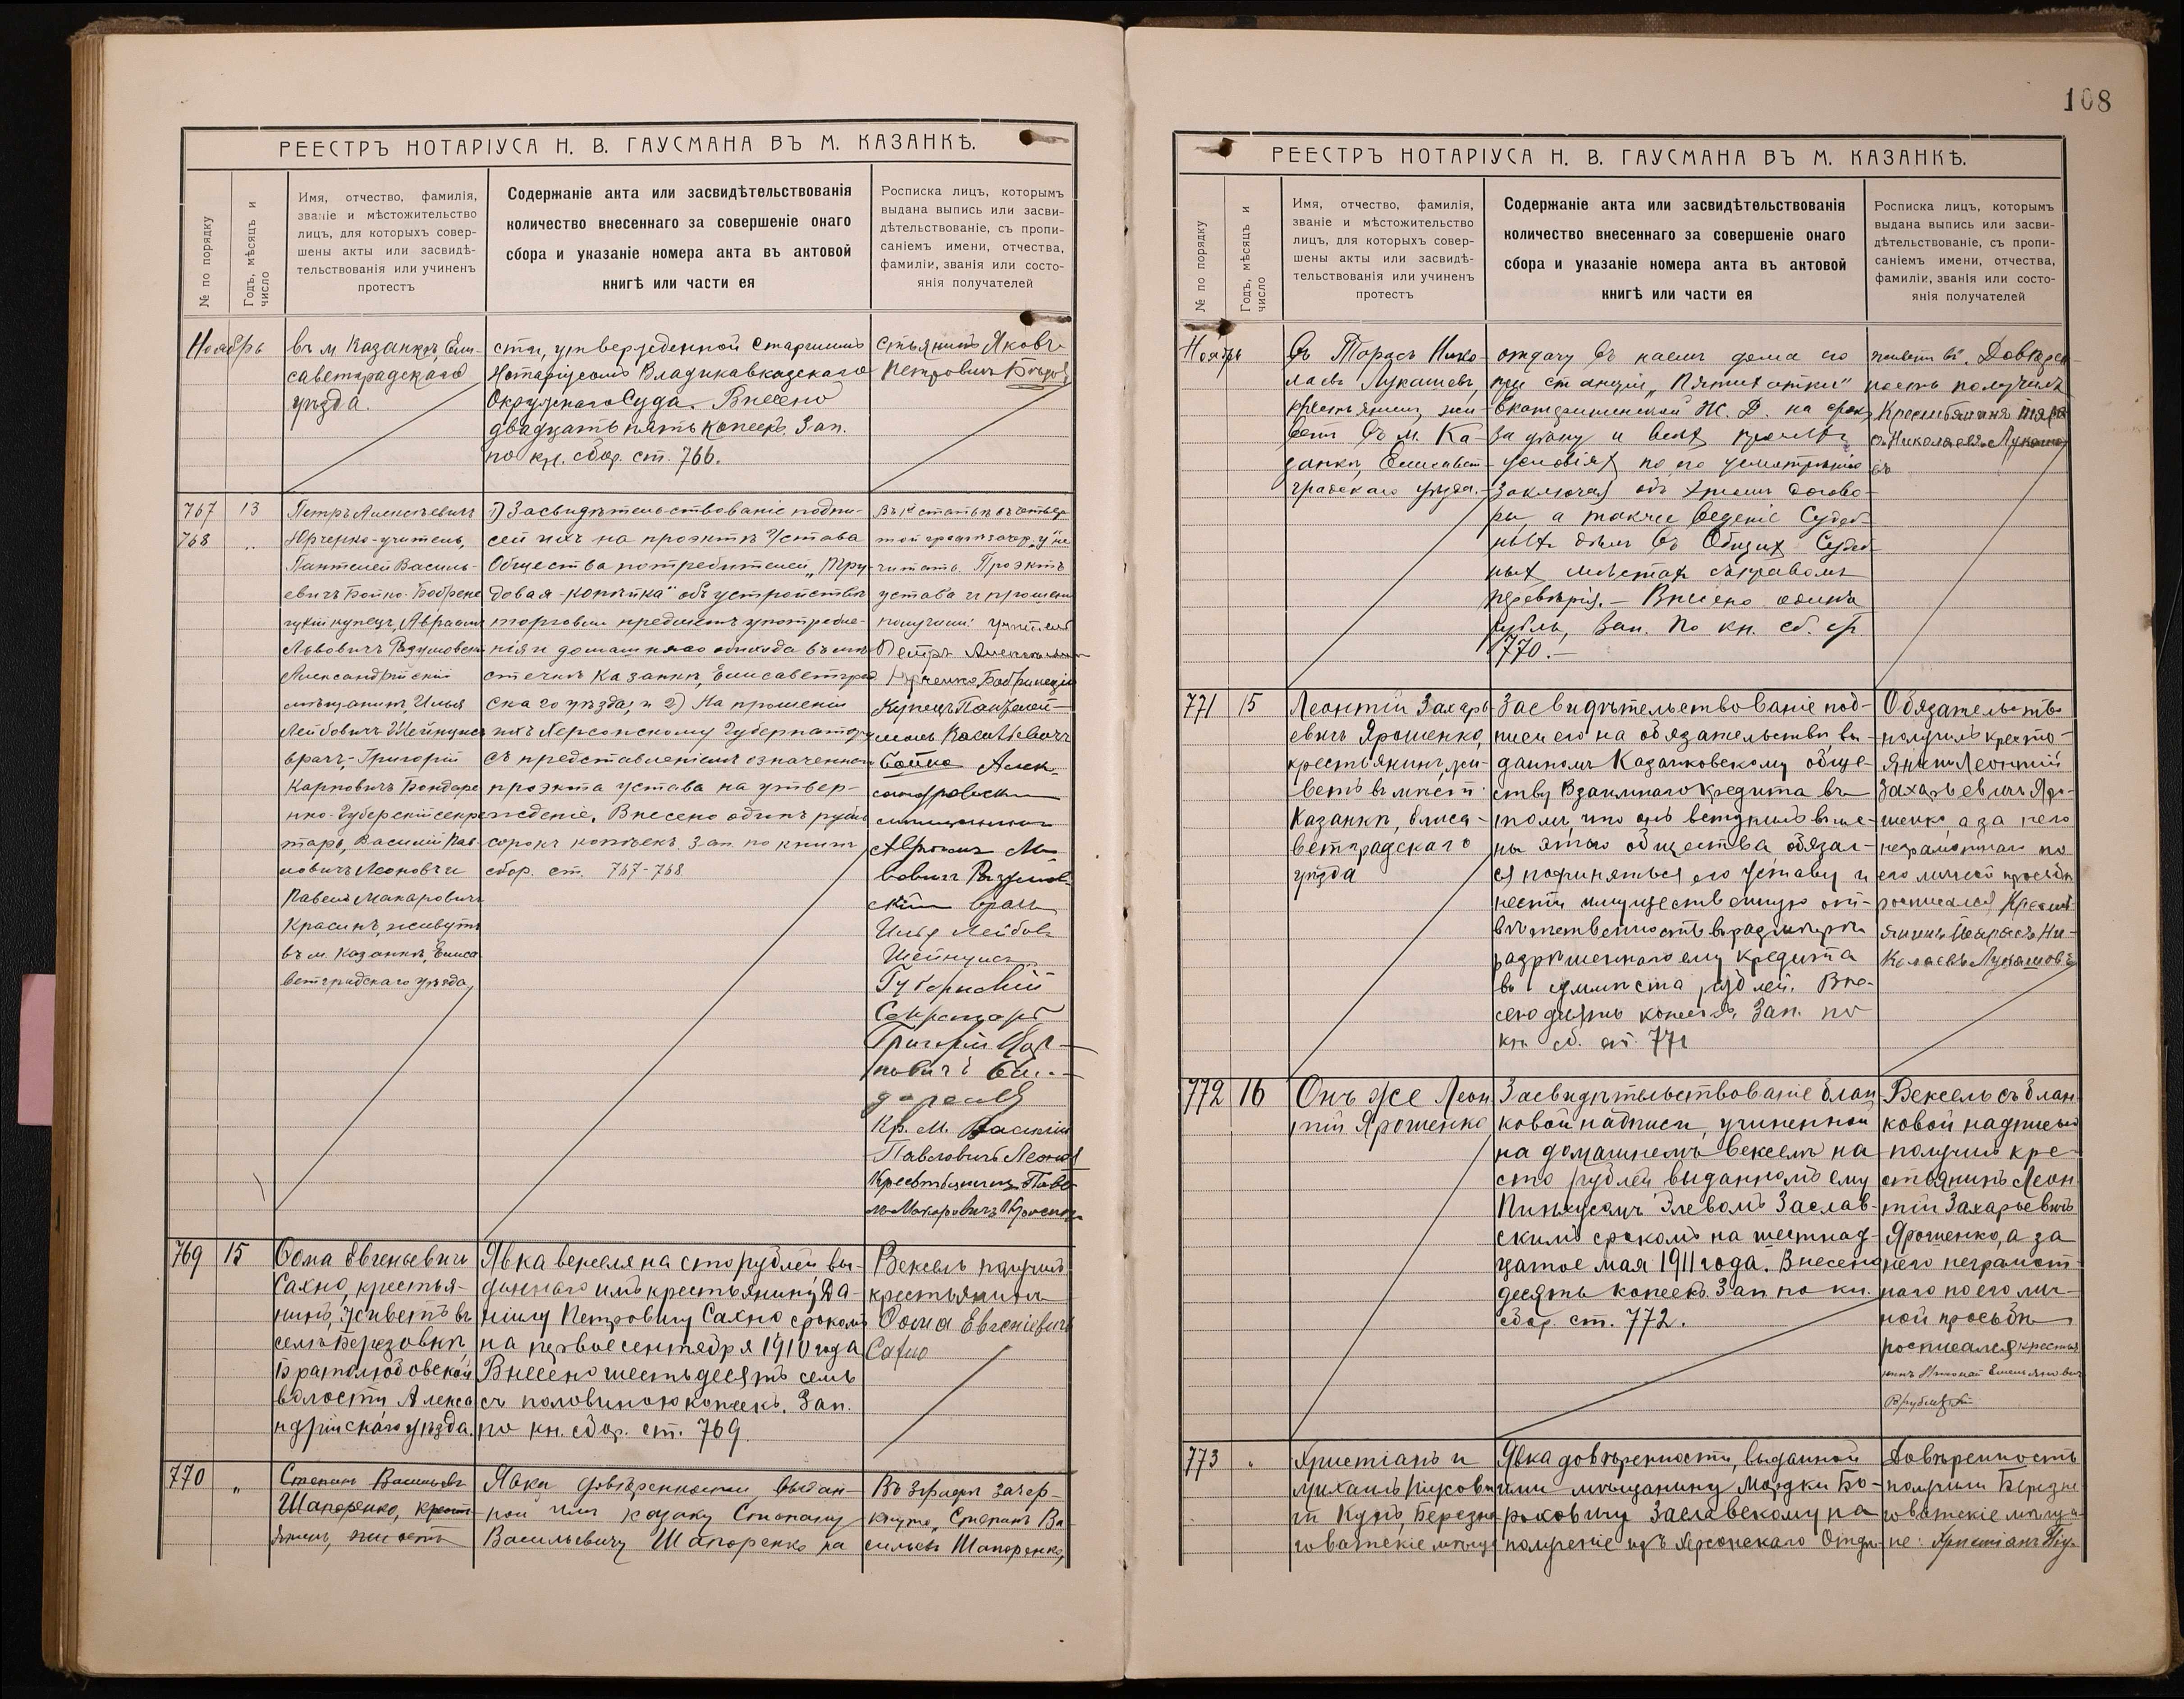 РЕЕСТРЪ НОТАРІУСА Н. В. ГАУСМАНА ВЪ М. КАЗАНКѢ.
№ по порядку
Годъ, мѣсяцъ и
число
Имя, отчество, фамилія,
званіе и мѣстожительство
лицъ, для которыхъ совер-
шены акты или засвидѣ-
тельствованія или учиненъ
протестъ
Содержаніе акта или засвидѣтельствованія
количество внесеннаго за совершеніе онаго
сбора и указаніе номера акта въ актовой
книгѣ или части ея
Росписка лицъ, которымъ
выдана выпись или засви-
дѣтельствованіе, съ пропи-
саніемъ имени, отчества,
фамиліи, званія или состо-
янія получателей
Ноябрь
въ м. Казанкѣ, Ели-
саветградскаго
уѣзда.
сти, утвержденной Старшимъ
Нотаріусомъ Владикавказскаго
Окружнаго Суда. Внесено
двадцать пять копеекъ. Зап.
по кн. сбор. ст. 766.
стьянинъ Яковъ
Петровичъ
767
768
13
„
Петръ Алексѣевичъ
Юрченко-учитель,
Пантелей Василь-
евичъ Бойко-Бобрине
цкій купецъ, Авраамъ
Львовичъ Разумовскій
Александрійскій
мѣщанинъ, Илья
Лейбовичъ Шейнцисъ
врачъ, Григорій
Карповичъ Бондаре
нко-Губернскій секре
тарь, Василій Пав-
ловичъ Леоновъ и
Павелъ Макаровичъ
Красинъ, живутъ
въ м. Казанкѣ, Елиса
ветградскаго уѣзда,
1) Засвидѣтельствованіе подпи-
сей ихъ на проэктѣ Устава
Общества потребителей „Тру-
довая-копѣйка" объ устройствѣ
торговли предметъ употребле-
нія и домашняго обихода въ мѣ
стечкѣ Казанкѣ, Елисаветград
скаго уѣзда; и 2) На прошеніи
ихъ Херсонскому Губернатору
съ представленіемъ означеннаго
проэкта устава на утвер-
жденіе. Внесено одинъ рубль
сорокъ копѣекъ. Зап. по книгѣ
сбор. ст. 767-768
Въ 1й статьѣ въ четвер
той графѣ зачер. „у" не
читать. Проэктъ
устава и прошеніе
получили: учитель
Петръ Алексѣевичъ
Юрченко, Бобринецкій
Купецъ Пантелей-
монъ Васильевичъ
Бойко Алек-
Авраамъ Ль
вовичъ Разумов
скій врачъ
Илья Лейбовъ
Шейнцисъ
Губернскій
Секретарь
Григорій Кар-
повичъ Бон-
даренко
Кр. М. Василій
Павловичъ Леоновъ
Крестьянинъ Паве
лъ Макаровичъ Красинъ
769
15
Ѳома Евгеньевичъ
Сахно, крестья-
нинъ, живетъ въ
селѣ Березовкѣ,
Братолюбовской
волости Алекса
ндрійскаго уѣзда.
Явка векселя на сто рублей вы-
даннаго имъ крестьянину Да-
ніилу Петровичу Сахно срокомъ
на первое сентября 1910 года
Внесено шестьдесятъ семь
съ половиною копеекъ. Зап.
по кн. сбор. ст. 769.
Вексель получилъ
крестьянинъ
Ѳома Евгеніевичъ
Сахно
770
„
Степанъ Васильевъ
Шапоренко, крест-
янинъ, живетъ
Явка довѣренности выдан-
ной имъ козаку Степану
Васильевичу Шапоренко на
Въ 3 графѣ зачер-
кнуто „Степанъ Ва-
сильевъ Шапоренко,
108
РЕЕСТРЪ НОТАРІУСА Н. В. ГАУСМАНА ВЪ М. КАЗАНКѢ.
№ по порядку
Годъ, мѣсяцъ и
число
Имя, отчество, фамилія,
званіе и мѣстожительство
лицъ, для которыхъ совер-
шены акты или засвидѣ-
тельствованія или учиненъ
протестъ
Содержаніе акта или засвидѣтельствованія
количество внесеннаго за совершеніе онаго
сбора и указаніе номера акта въ актовой
книгѣ или части ея
Росписка лицъ, которымъ
выдана выпись или засви-
дѣтельствованіе, съ пропи-
саніемъ имени, отчества,
фамиліи, званія или состо-
янія получателей
Ноябрь
въ Тарасъ Нико-
лаевъ Лукашевъ,
крестьянинъ, жи-
ветъ въ м. Ка-
занкѣ, Елисавет-
градскаго уѣзда.
отдачу въ наемъ дома его
при станціи „Пятихатки"
Екатерининской Ж. Д. на срокъ
за цѣну и всѣхъ прочихъ
условіяхъ по его усмотрѣнію
заключая объ этомъ догово-
ры, а также веденіе Судеб-
ныхъ дѣлъ въ Общихъ Судеб-
ныхъ мѣстахъ съ правомъ
передовѣрія. — Внесено одинъ
рубль, Зап. по кн. сб. ст.
770. —
живетъ въ". Довѣрен-
ность получилъ
Крестьянинъ Тара
съ Николаевъ Лукаше
въ
771
15
Леонтій Захарь
евичъ Ярошенко,
крестьянинъ, жи-
ветъ въ мѣст.
Казанкѣ, Елиса-
ветградскаго
уѣзда
Засвидѣтельствованіе под-
писи его на обязательствѣ, вы-
данномъ Казанковскому обще-
ству Взаимнаго Кредита въ
томъ, что онъ вступивъ въ чле-
ны этого общества обязал-
ся подчиняться его Уставу и
нести имущественную отв-
вѣтственность въ размѣрѣ
разрѣшеннаго ему кредита
въ рублей. Вне-
сено десять копеекъ. Зап. по
кн. сб. ст. 771
Обязательство
получилъ кресть-
янинъ Леонтій
Захарьевичъ Яро-
шенко, а за него
неграмотнаго по
его личной просьбѣ
росписался Крестья-
янинъ Тарасъ Ни-
колаевъ Лукашовъ
772
16
Онъ же Леон
тій Ярошенко
Засвидѣтельствованіе блан
ковой надписи, учиненной
на домашнемъ векселѣ на
сто рублей выданномъ ему
Пинхусомъ Элевомъ Заслав-
скимъ срокомъ на шестнад-
цатое мая 1911 года. Внесено
десять копеекъ. Зап. по кн.
сбор. ст. 772.
Вексель съ блан
ковой надписью
получилъ кре-
стьянинъ Леон
тій Захарьевичъ
Ярошенко, а за
него неграмот
наго по его лич-
ной просьбѣ
росписался крестья
нинъ Николай Емельяновичъ
773
„
Христіанъ и
Михаилъ
Кунъ, Березне
говатскіе мѣща
Явка довѣренности, выданной
ими мѣщанину Мордки Бо-
роховичу Заславскому на
полученіе изъ Херсонскаго Отдѣ
Довѣренность
получили Березне
говатскіе мѣща
не: Христіанъ